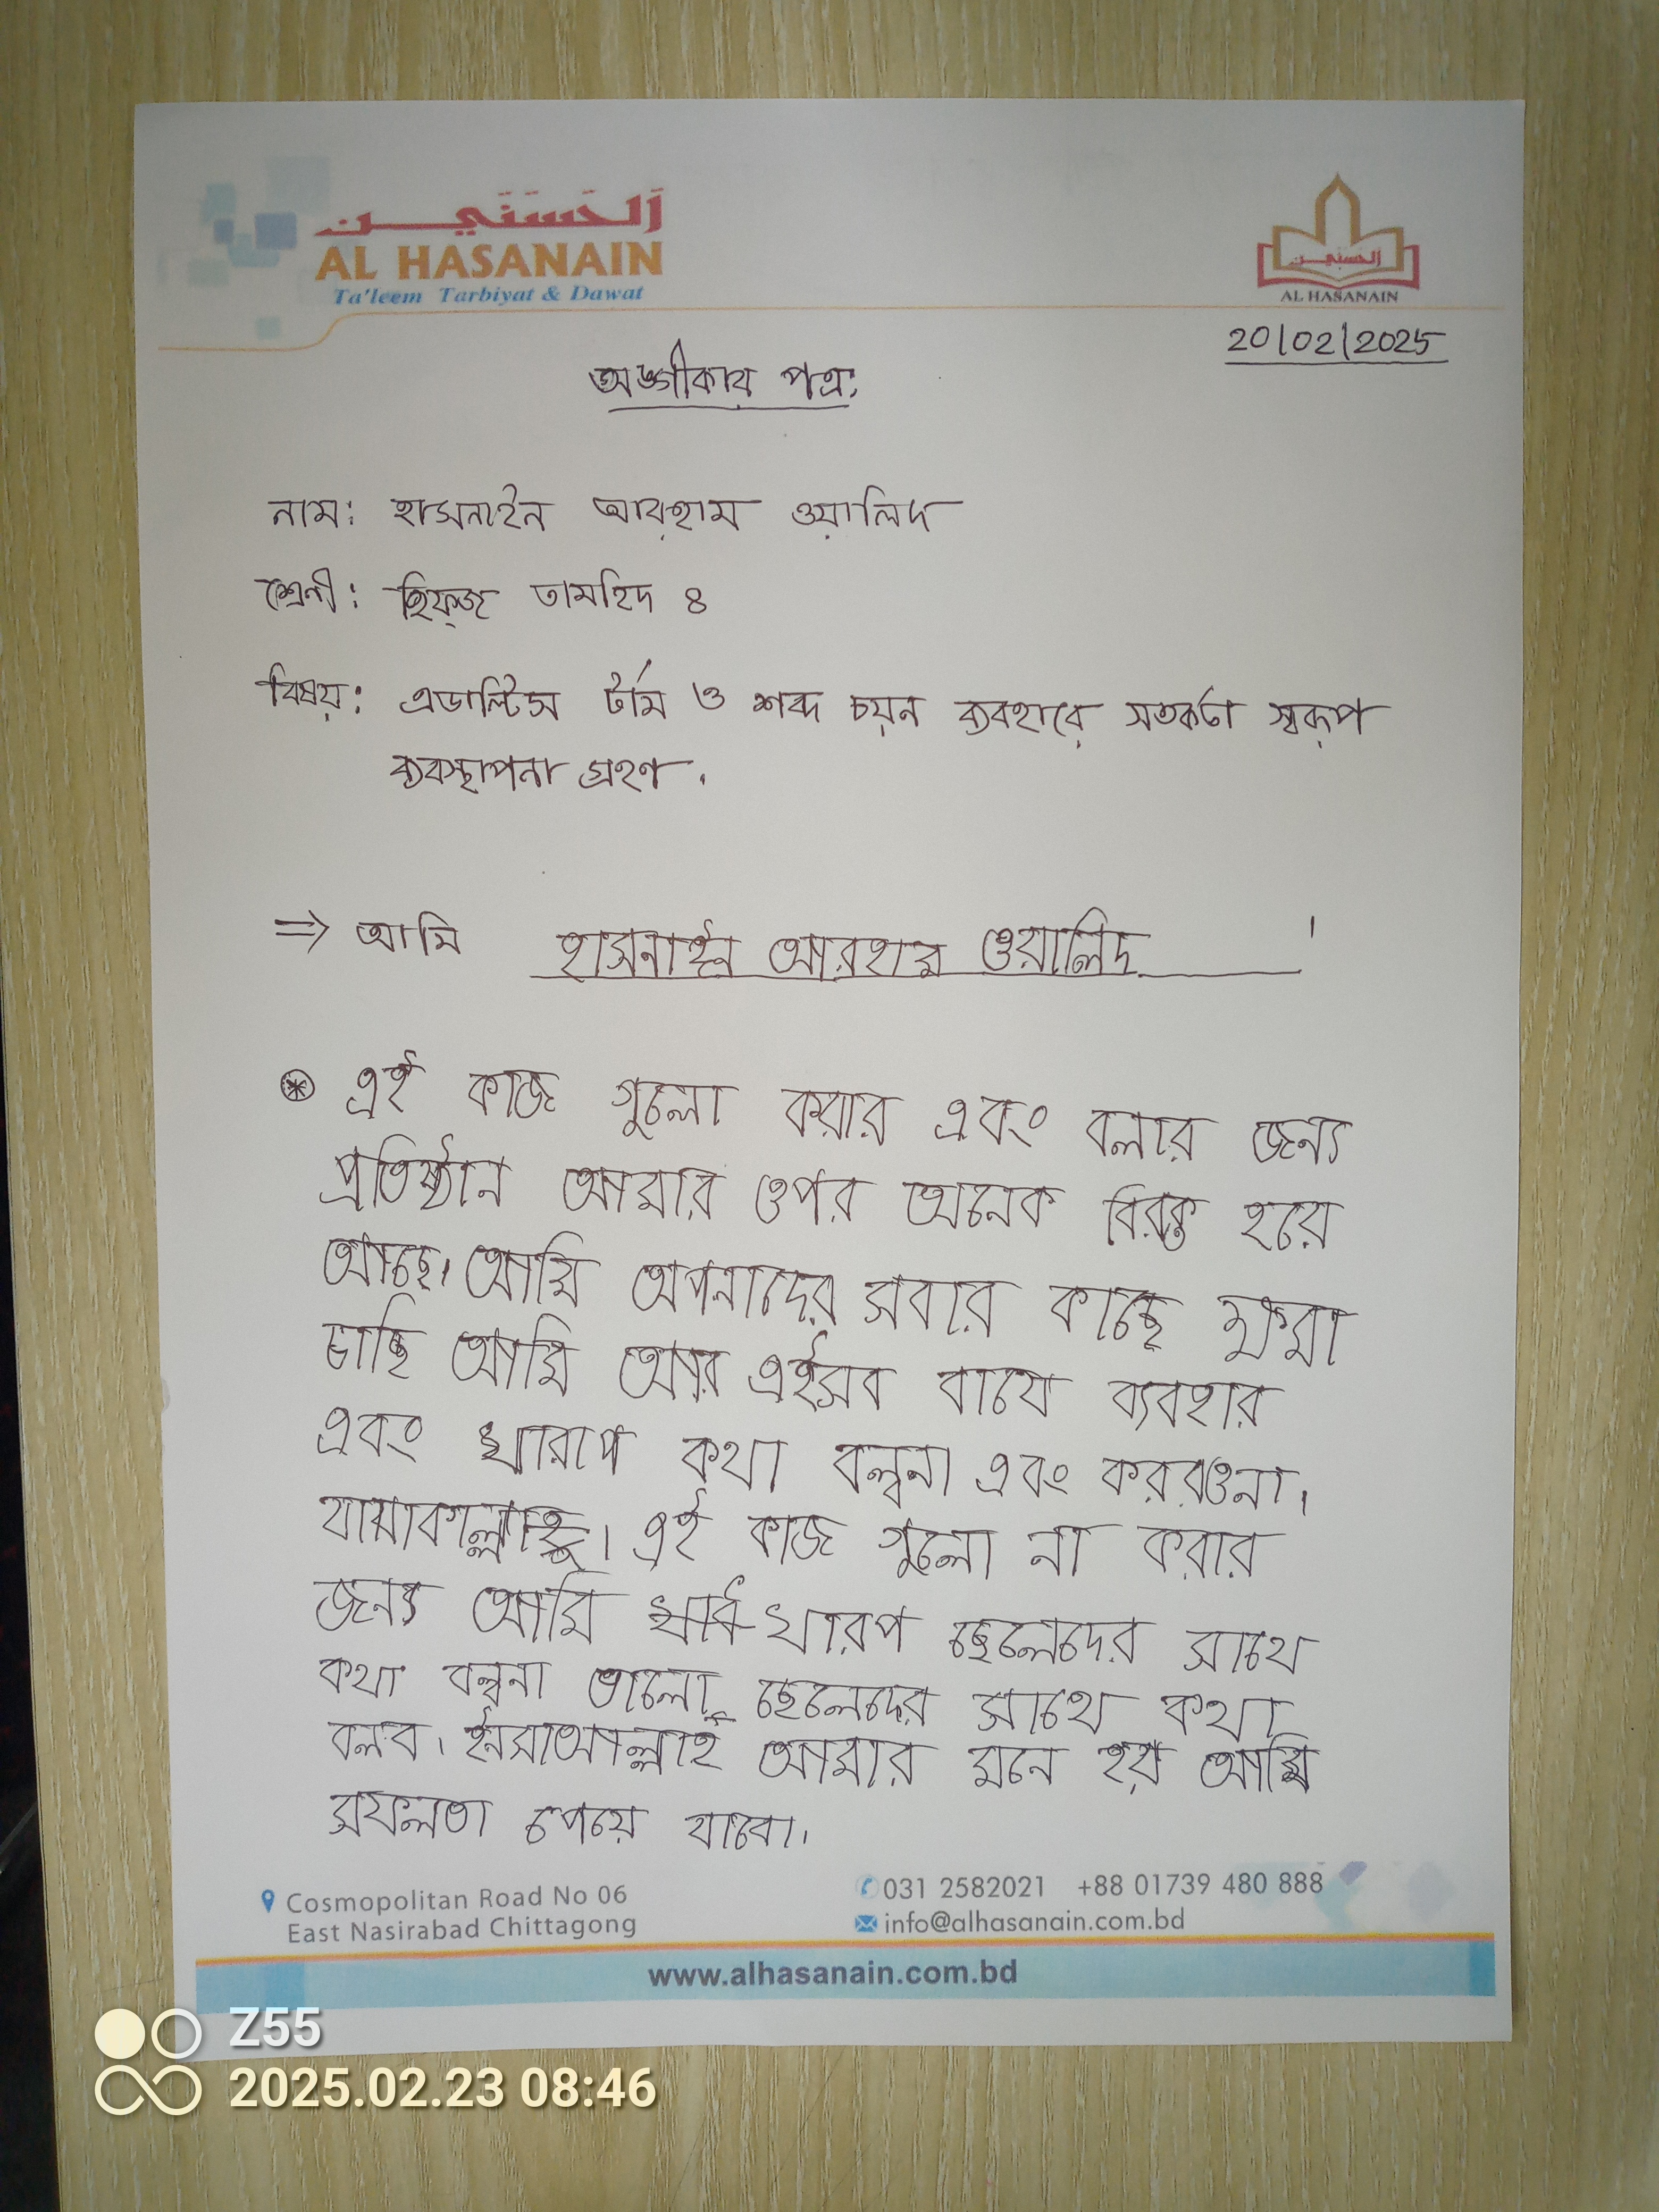 اَلْحَسَنَيـــن
AL HASANAIN
Ta'leem Tarbiyat & Dawat
اَلْحَسَنَيـــن
AL HASANAIN
20/02/2025
অঙ্গীকার পত্র:
নাম: হাসনাইন আরহাম ওয়ালিদ
শ্রেনী: হিফ্জ তামহিদ ৪
বিষয়: এডাল্টিস টার্ম ও শব্দ চয়ন ব্যবহারে সতর্কতা স্বরূপ
ব্যবস্থাপনা গ্রহণ.
=> আমি হাসনাইন আরহাম ওয়ালিদ।
* এই কাজ গুলো করার এবং বলার জন্য
প্রতিষ্ঠান আমার ওপর অনেক বিরক্ত হয়ে
আছে। আমি অপনাদের সবার কাছে ক্ষমা
চাচ্ছি আমি আর এইসব বাযে ব্যবহার
এবং খারাপ কথা বল্বনা এবং করবওনা।
এই কাজ গুলো না করার
জন্য আমি খারপ ছেলেদের সাথে
কথা বল্বনা ভালো ছেলেদের সাথে কথা
বলব। ইনসাআল্লাহ আমার মনে হয় আমি
সফলতা পেয়ে যাবো।
Cosmopolitan Road No 06
East Nasirabad Chittagong
031 2582021 +88 01739 480 888
info@alhasanain.com.bd
www.alhasanain.com.bd
Z55
2025.02.23 08:46